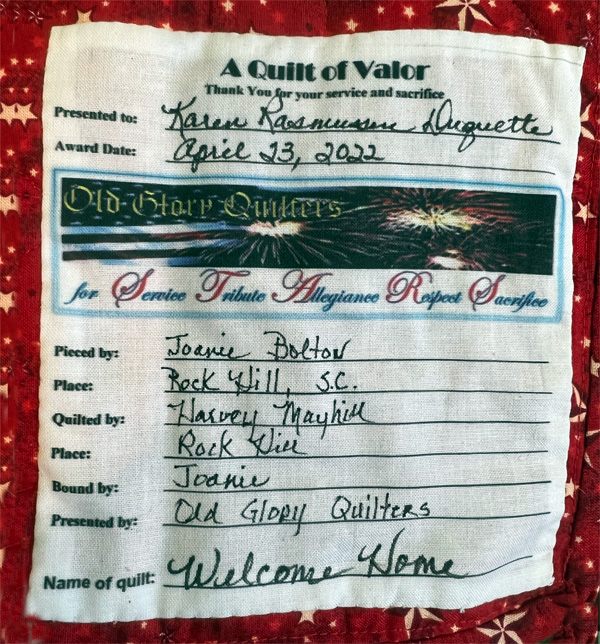 A Quilt of Valor
Thank You for your service and sacrifice
Presented to: Karen Rasmussen Duquette
Award Date: April 23, 2022
Old Glory Quilters
for Service Tribute Allegiance Respect Sacrifice
Pieced by: Joanie Bolton
Place: Rock Hill, S.C.
Quilted by: Harvey Mayhill
Place: Rock Hill
Bound by: Joanie
Presented by: Old Glory Quilters
Name of quilt: Welcome Home